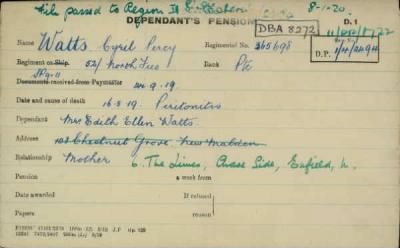 File passed to Region II 8-1-20.
DEPENDANT'S PENSION D.1
DBA 8272
Name Watts, Cyril Percy Regimental No. 365698 D.P.
Regiment or Ship 52/ North'd Fus Rank Pte
Documents received from Paymaster 24.9.19.
Date and cause of death 16.3.19. Peritonitis
Dependant Mrs Edith Ellen Watts.
Address 103 Chestnut Grove, New Malden
Relationship Mother 6 The Limes, Chase Side, Enfield, N.
Pension a week from
Date awarded If refused
Papers reason